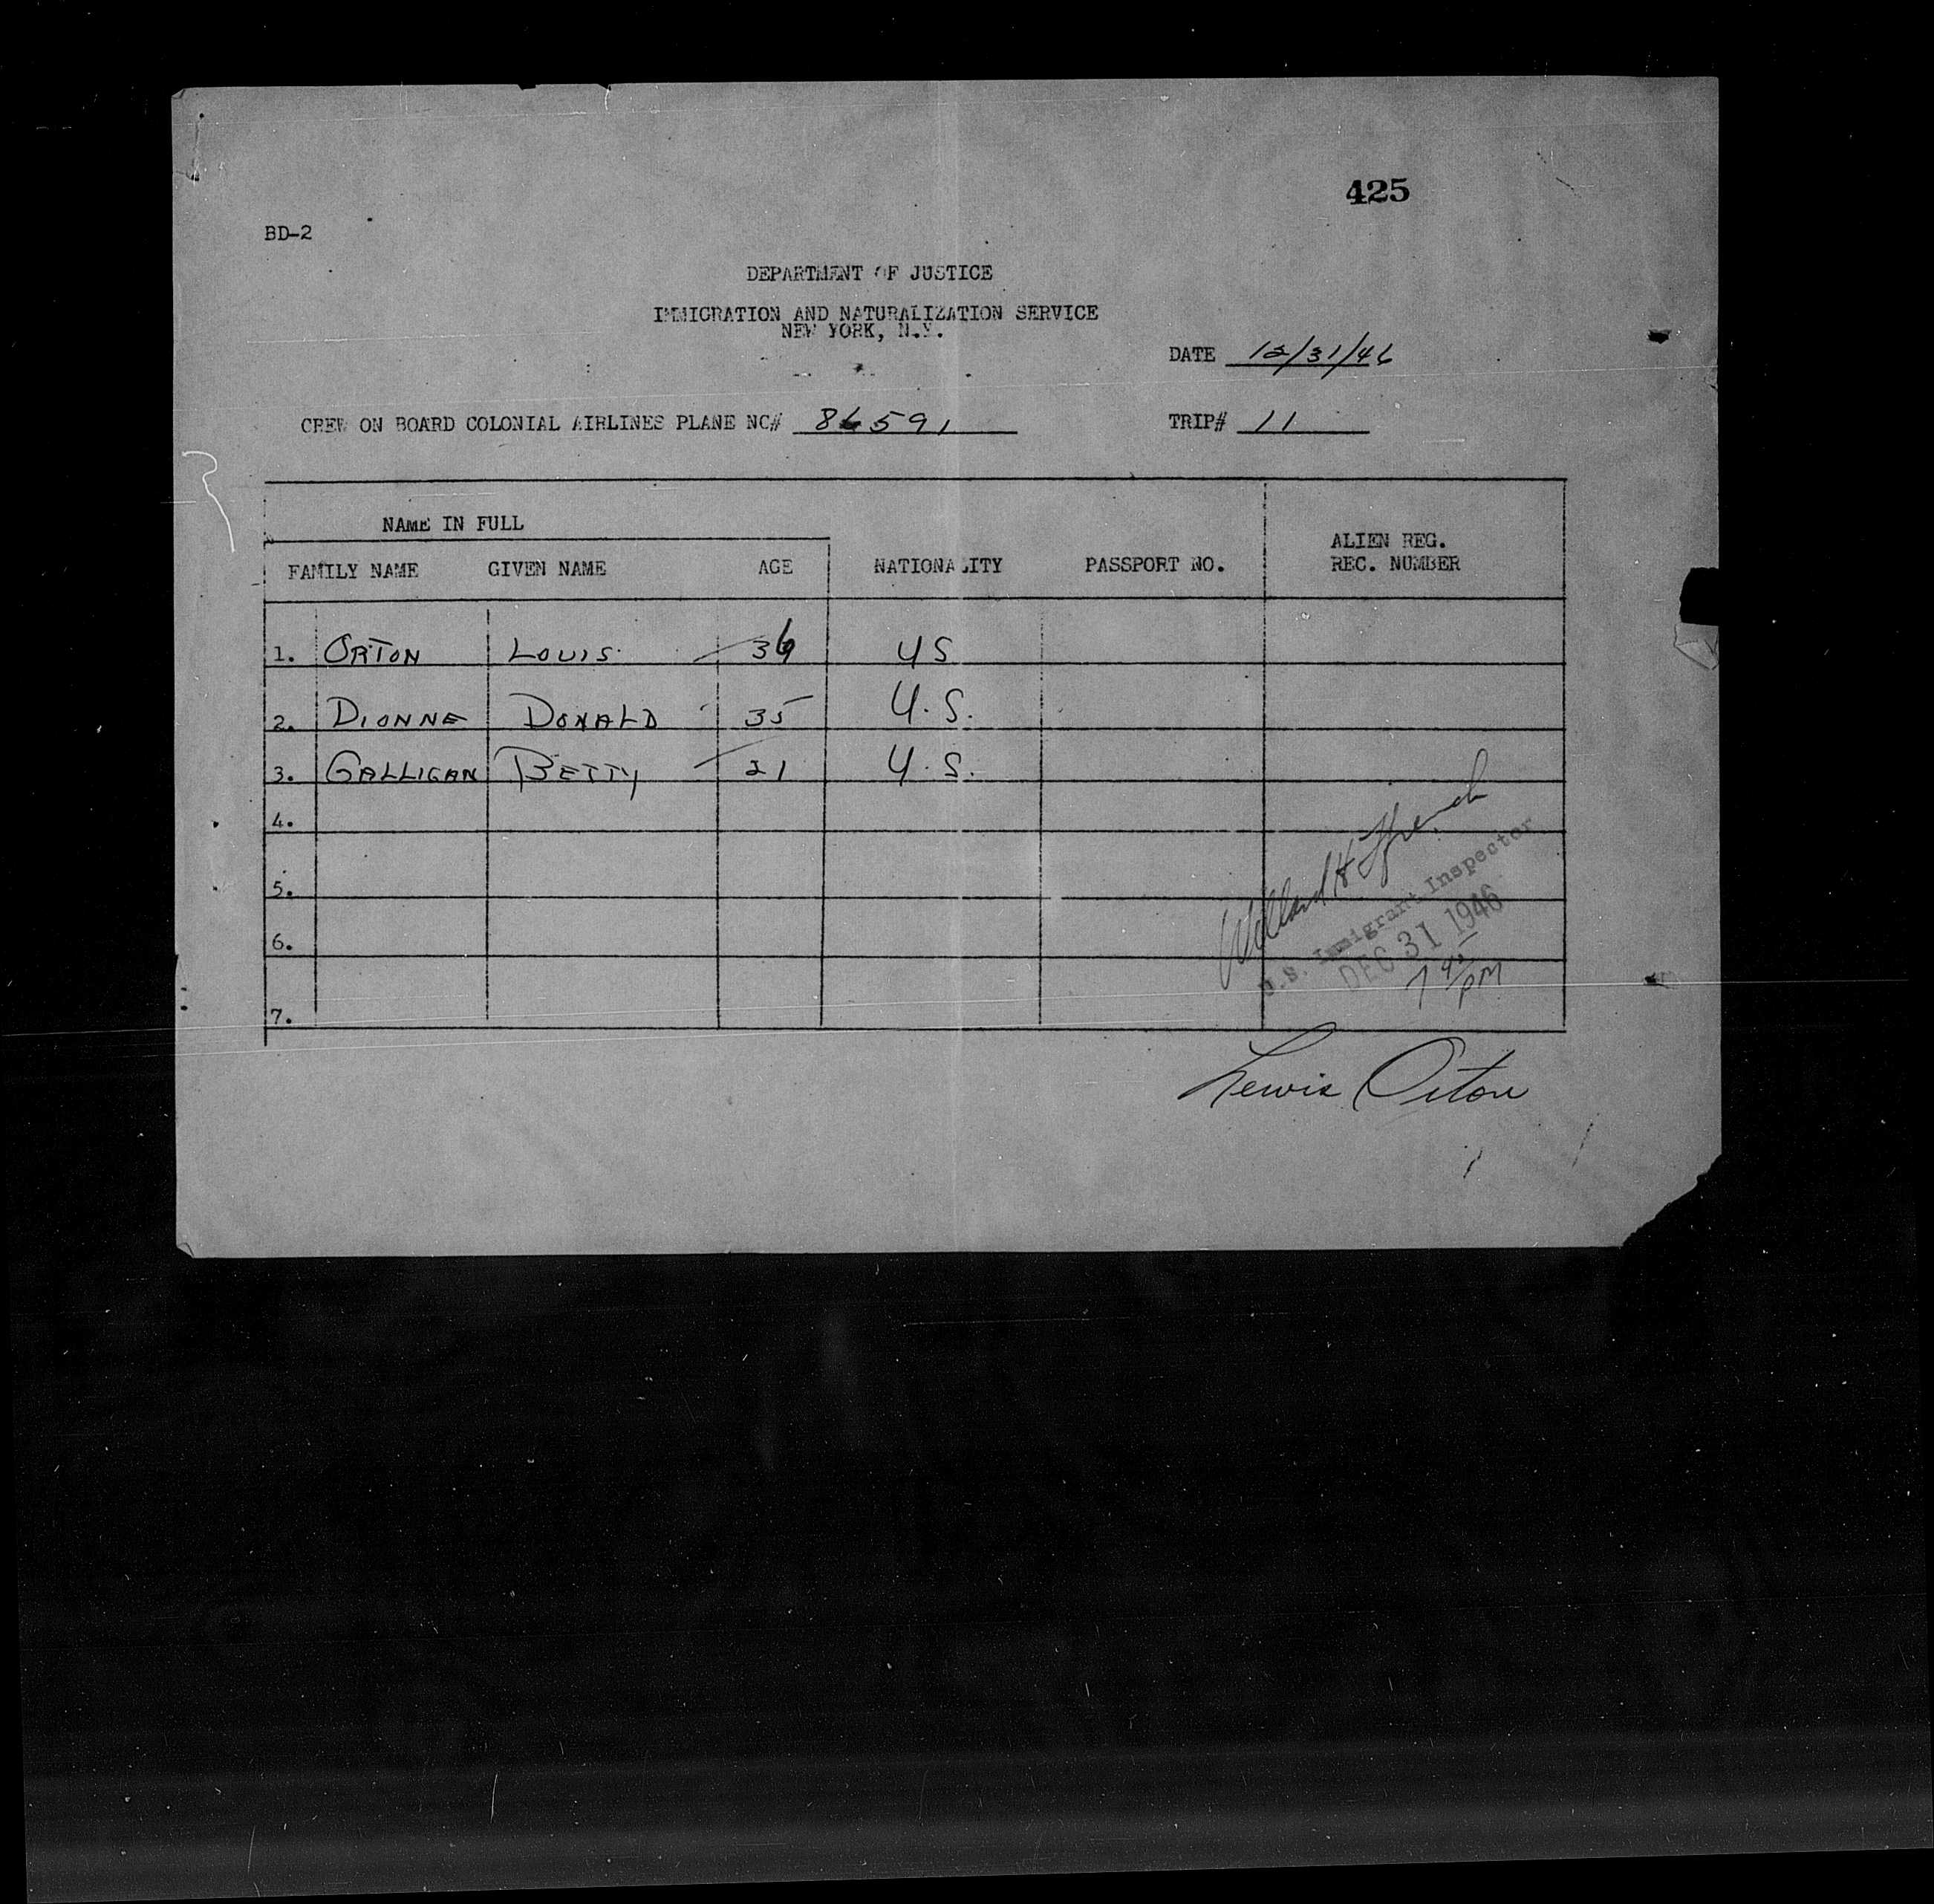 425
BD-2
DEPARTMENT OF JUSTICE
IMMIGRATION AND NATURALIZATION SERVICE
NEW YORK, N.Y.
DATE 12/31/46
CREW ON BOARD COLONIAL AIRLINES PLANE NC# 86591 TRIP# 11
NAME IN FULL
ALIEN REG.
FAMILY NAME GIVEN NAME AGE NATIONALITY PASSPORT NO. REC. NUMBER
1. ORTON LOUIS 36 US
2. DIONNE DONALD 35 U.S.
3. GALLIGAN BETTY 21 U.S.
4.
5.
6.
7.
Willard H
U.S. Immigrant Inspector
DEC 31 1946
7 45 PM
Lewis Orton